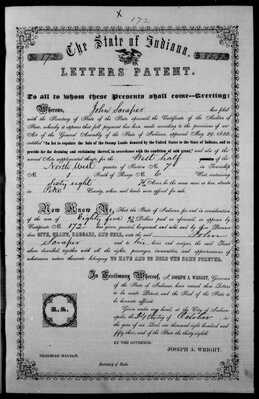 172
The State of Indiana.
LETTERS PATENT.
To all to whom these Presents shall come—Greeting:
Whereas, John
with the Secretary of State of the State aforesaid the Certificate of the Auditor of
State, whereby it appears that full payment has been made according to the provisions of an
Act of the General Assembly of the State of Indiana approved May 29, 1852,
entitled "An Act to regulate the Sale of the Swamp Lands donated by the United States to the State of Indiana, and to
provide for the draining and reclaiming thereof, in accordance with the condition of said grant," and also of the
several Acts supplemental thereto, for the West half
North West quarter of Section No. 7
South of Range No. 6 West containing
sixty eight Acres in the same more or less, situate
in Pike County, when said lands were offered for sale.
Now Know Ye, That the State of Indiana, for and in consideration
of the sum of Eighty five Dollars paid as aforesaid, as appears by
Certificate No. 172
GIVE, GRANT, BARGAIN, AND SELL, unto the said John
and to his heirs and assigns, the said Tract
above described, together with all the rights, privileges, immunities, and appurtenances of
whatsoever nature thereunto belonging TO HAVE AND TO HOLD THE SAME FOREVER.
In Testimony Whereof, I, JOSEPH A. WRIGHT, Governor
of the State of Indiana, have caused these Letters
to be made Patent, and the Seal of the State to
be hereunto affixed.
Given under my hand, at the City of Indianapolis,
the day of October in
the year of our Lord, one thousand eight hundred and
fifty three, and of the State the thirty eighth.
BY THE GOVERNOR:
JOSEPH A. WRIGHT.
NEHEMIAH HAYDEN,
Secretary of State.